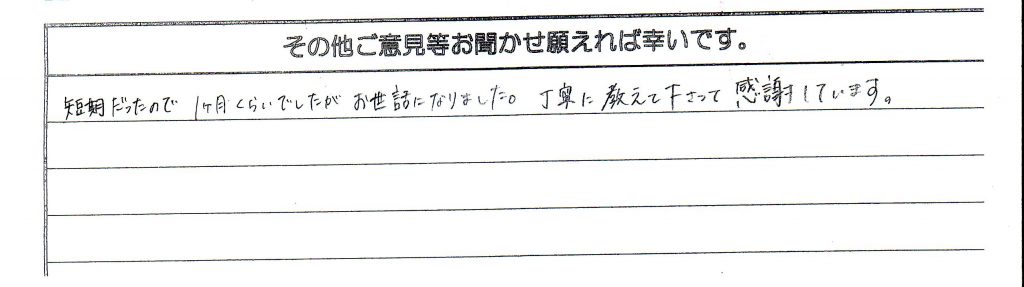 その他ご意見等お聞かせ願えれば幸いです。
短期だったので 1ヶ月くらいでしたが お世話になりました。丁寧に教えて下さって感謝しています。